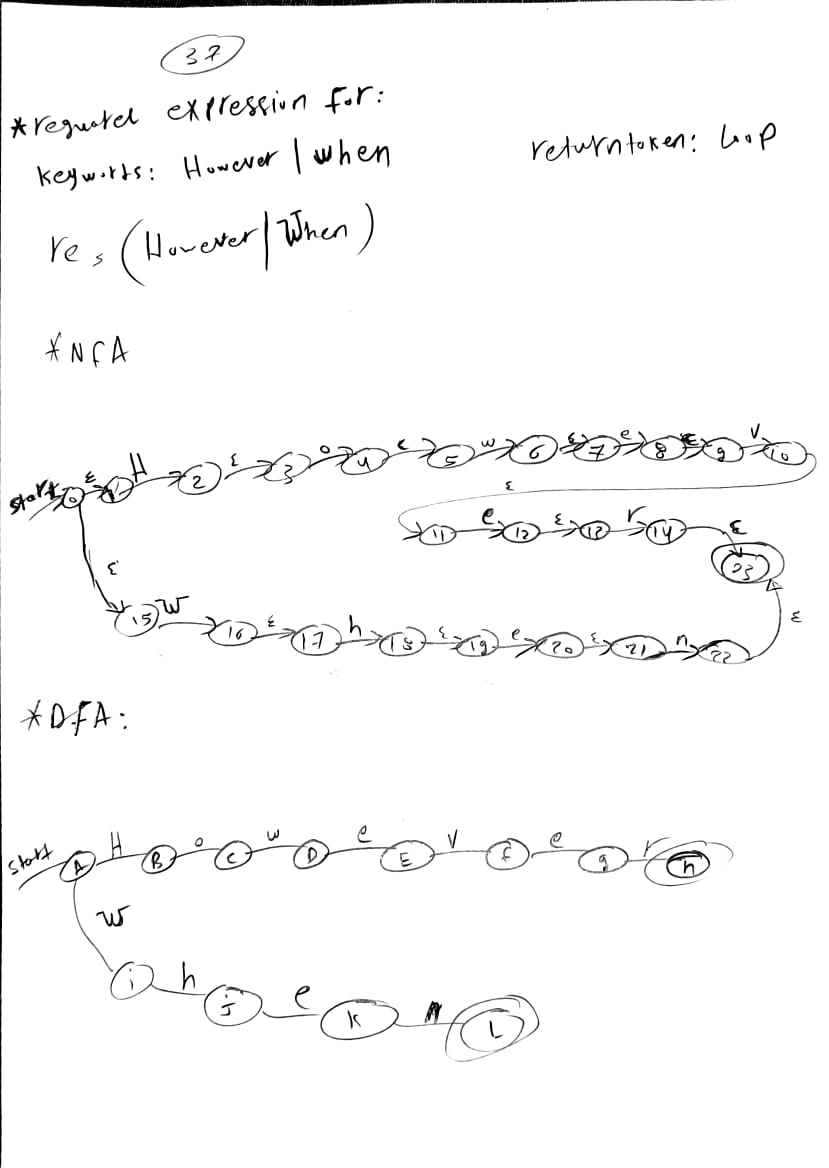 37
*reguatel expression for:
keywords: However | when returntoken: Loop
re, (However|When)
*NFA
start 0 ε 1 H 2 ε 3 o 4 ε 5 w 6 ε 7 e 8 ε 9 v 10
ε
11 e 12 ε 13 r 14 ε
23
ε
15 W 16 ε 17 h 18 ε 19 e 20 ε 21 n 22 ε
*DFA:
start A H B o C w D e E V f e g r h
W
i h j e K n L